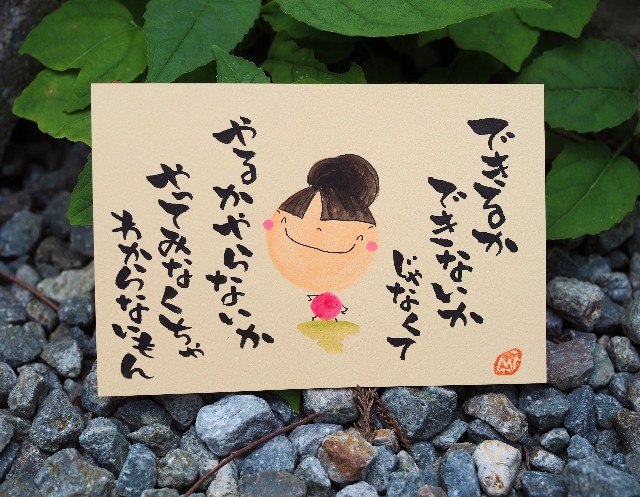 できるか
できないか
じゃなくて
やるかやらないか
やってみなくちゃ
わからないもん